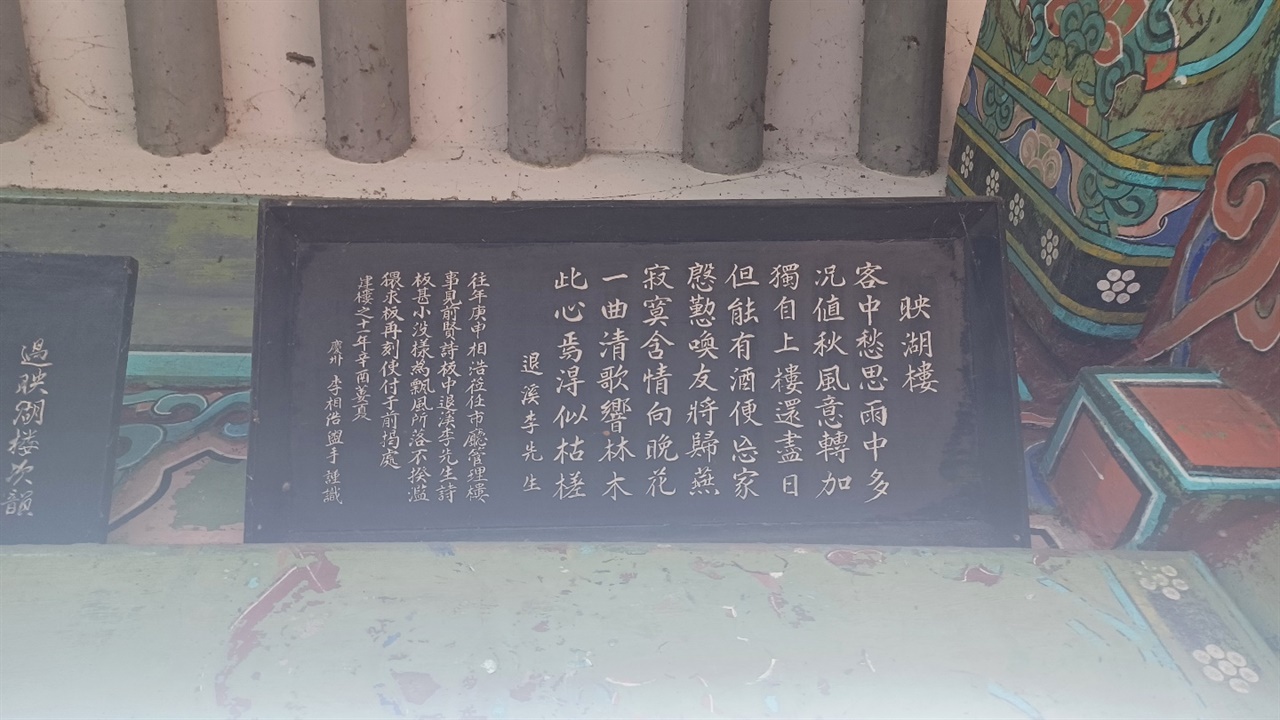 映湖樓
客中愁思雨中多
况値秋風意轉加
獨自上樓還盡日
但能有酒便忘家
慇懃喚友將歸燕
寂寞含情向晚花
一曲清歌響林木
此心焉得似枯槎
退溪李先生
往年庚申相浩莅任市廳管理樓
事見前賢詩板中退溪李先生詩
板甚小没樣爲飄風所落不揆濫
猥求板再刻使付于前揭處
建樓之十一年辛酉蓋夏
廣州 李相浩盥手謹識
過映湖樓次韻